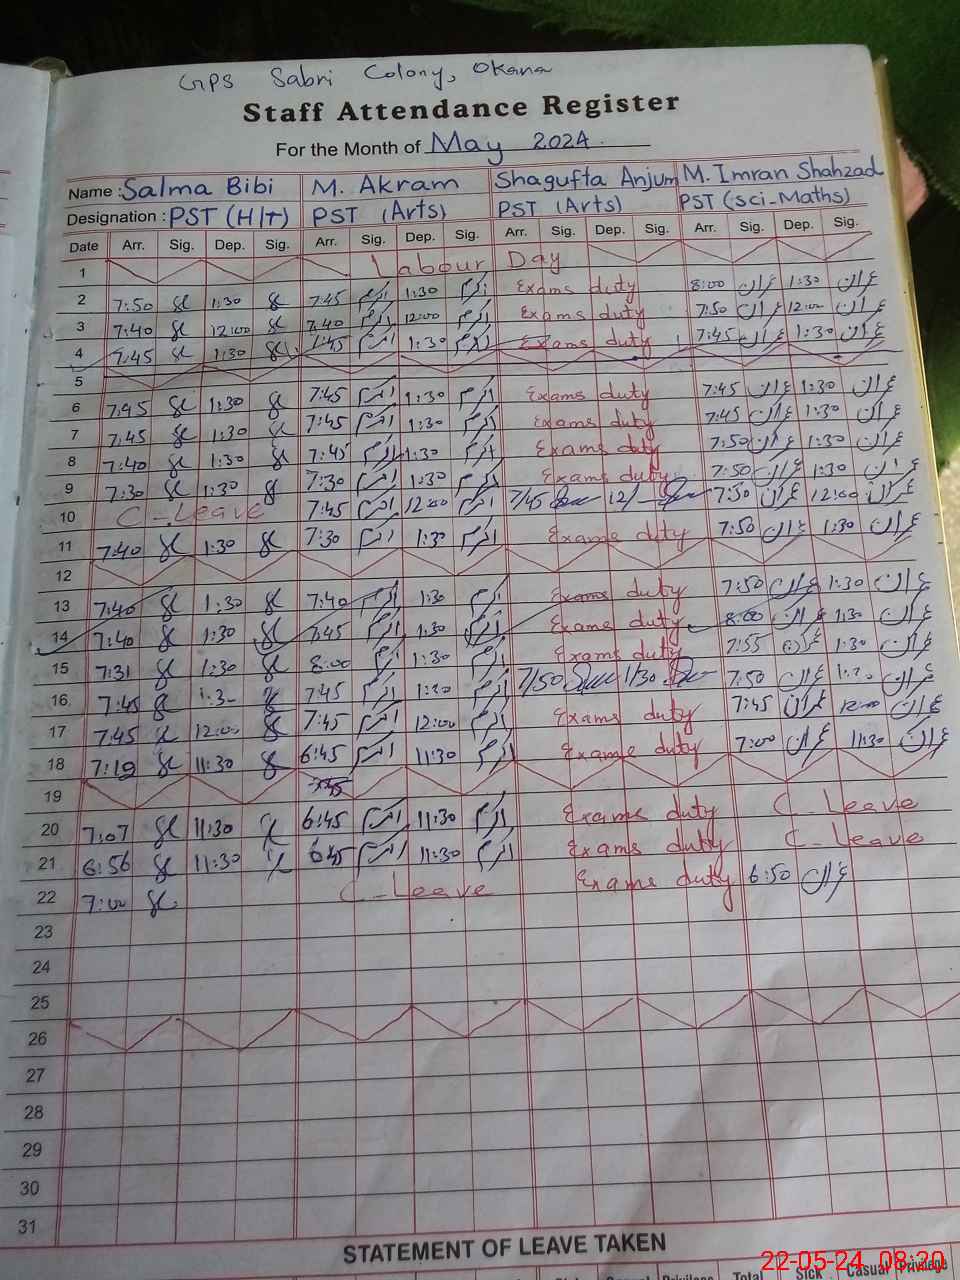 GPS Sabri Colony, Okara
Staff Attendance Register
For the Month of May 2024
Name : Salma Bibi M. Akram Shagufta Anjum M. Imran Shahzad
Designation : PST (H/T) PST (Arts) PST (Arts) PST (sci-Maths)
Date Arr. Sig. Dep. Sig. Arr. Sig. Dep. Sig. Arr. Sig. Dep. Sig. Arr. Sig. Dep. Sig.
1 Labour Day
2 7:50 1:30 7:45 اکرم 1:30 اکرم Exams duty 8:00 عمران 1:30 عمران
3 7:40 12:00 7:40 اکرم 12:00 اکرم Exams duty 7:50 عمران 12:00 عمران
4 7:45 1:30 7:45 اکرم 1:30 اکرم Exams duty 7:45 عمران 1:30 عمران
5
6 7:45 1:30 7:45 اکرم 1:30 اکرم Exams duty 7:45 عمران 1:30 عمران
7 7:45 1:30 7:45 اکرم 1:30 اکرم Exams duty 7:45 عمران 1:30 عمران
8 7:40 1:30 7:45 اکرم 1:30 اکرم Exams duty 7:50 عمران 1:30 عمران
9 7:30 1:30 7:30 اکرم 1:30 اکرم Exams duty 7:50 عمران 1:30 عمران
10 C-Leave 7:45 اکرم 12:00 اکرم 7/45 12/- 7:50 عمران 12:00 عمران
11 7:40 1:30 7:30 اکرم 1:30 اکرم Exams duty 7:50 عمران 1:30 عمران
12
13 7:40 1:30 7:40 اکرم 1:30 اکرم Exams duty 7:50 عمران 1:30 عمران
14 7:40 1:30 7:45 اکرم 1:30 اکرم Exams duty 8:00 عمران 1:30 عمران
15 7:31 1:30 8:00 اکرم 1:30 اکرم Exams duty 7:55 عمران 1:30 عمران
16 7:45 1:30 7:45 اکرم 1:20 اکرم 7/50 1/30 7:50 عمران عمران
17 7:45 12:00 7:45 اکرم 12:00 اکرم Exams duty 7:45 عمران 12:00 عمران
18 7:19 11:30 6:45 اکرم 11:30 اکرم Exams duty 7:00 عمران 11:30 عمران
19
20 7:07 11:30 6:45 اکرم 11:30 اکرم Exams duty C-Leave
21 6:56 11:30 6:45 اکرم 11:30 اکرم Exams duty C-Leave
22 7:00 C-Leave Exams duty 6:50 عمران
23
24
25
26
27
28
29
30
31
STATEMENT OF LEAVE TAKEN
Total Sick Casual Privilege
22-05-24 08:20